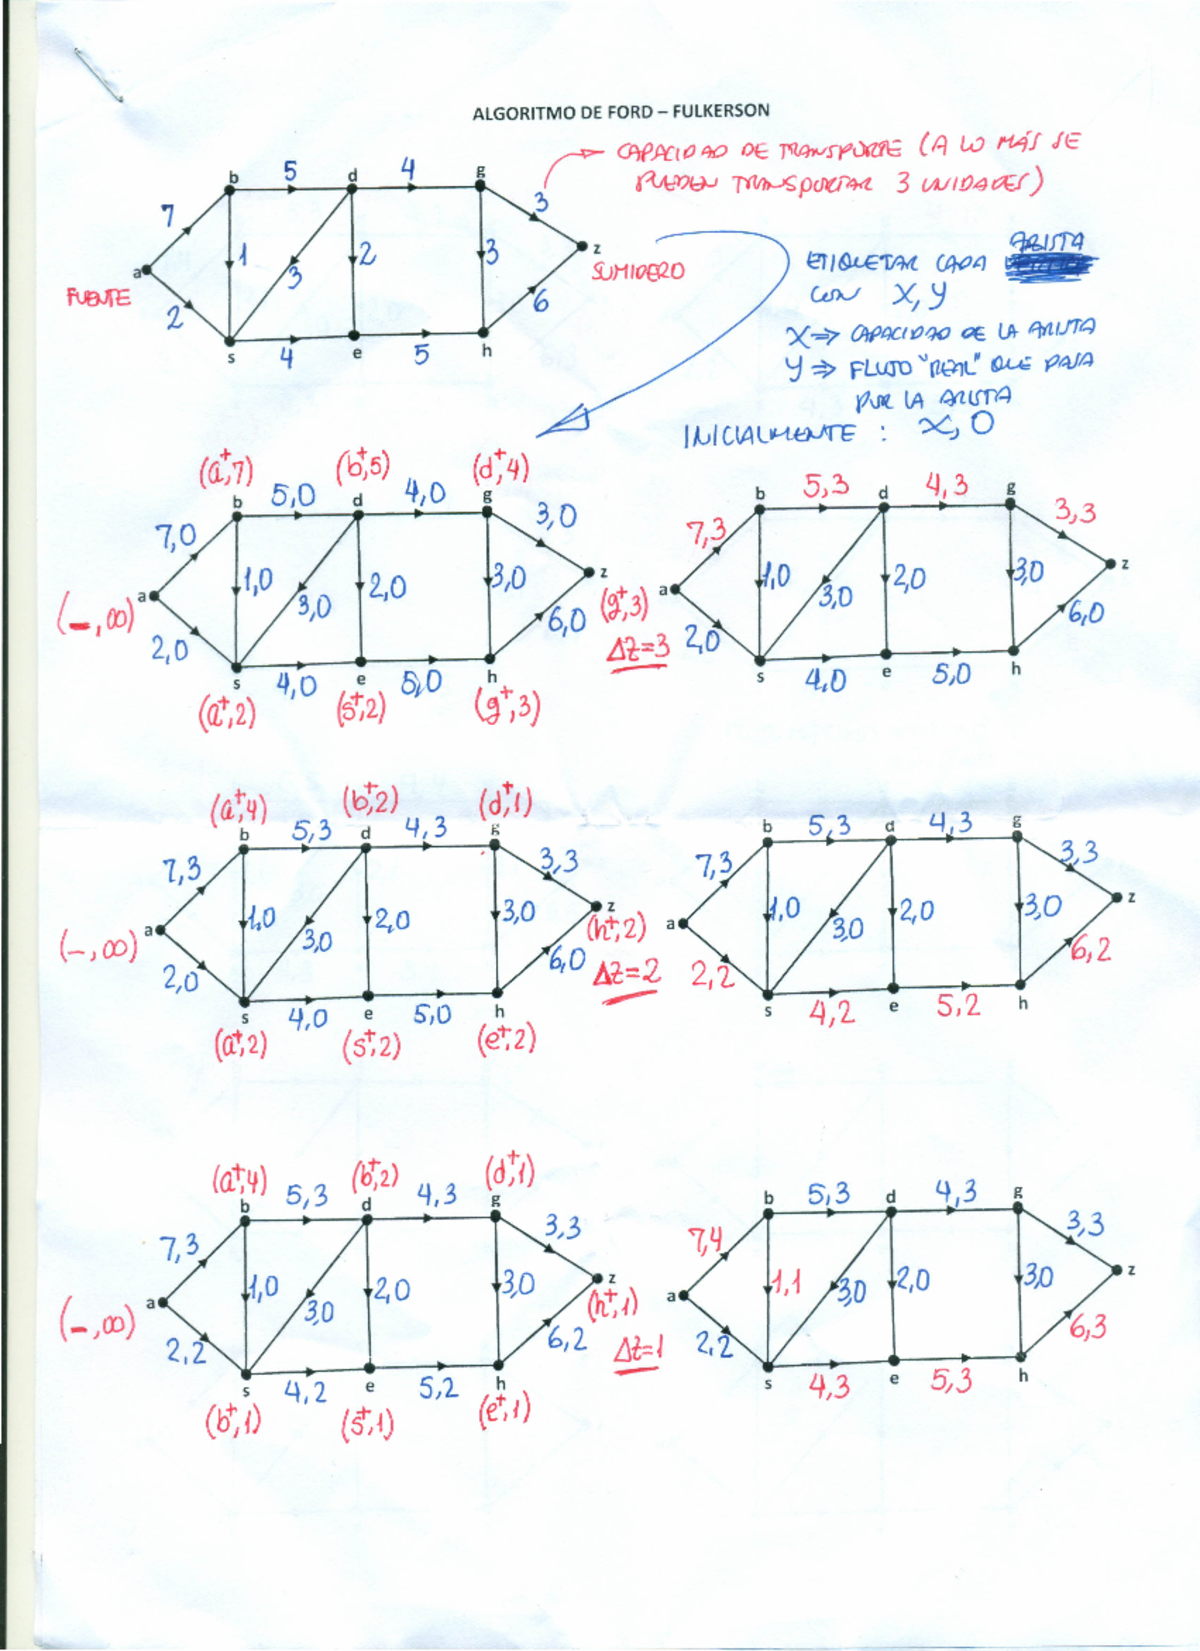 ALGORITMO DE FORD – FULKERSON
CAPACIDAD DE TRANSPORTE (A LO MÁS SE
PUEDEN TRANSPORTAR 3 UNIDADES)
b 5 d 4 g
7 1 3 2 3 3
a z
FUENTE SUMIDERO
2 6
s 4 e 5 h
ARISTA
ETIQUETAR CADA
CON X, Y
X ⇒ CAPACIDAD DE LA ARISTA
Y ⇒ FLUJO "REAL" QUE PASA
POR LA ARISTA
INICIALMENTE : X, 0
(a+,7) (b+,5) (d+,4)
b 5,0 d 4,0 g
7,0 3,0
1,0 3,0 2,0 3,0
a z
(-,∞) (g+,3)
2,0 6,0 Δz=3
s 4,0 e 5,0 h
(a+,2) (s+,2) (g+,3)
b 5,3 d 4,3 g
7,3 3,3
1,0 3,0 2,0 3,0
a z
2,0 6,0
s 4,0 e 5,0 h
(a+,4) (b+,2) (d+,1)
b 5,3 d 4,3 g
7,3 3,3
1,0 3,0 2,0 3,0
a z
(-,∞) (h+,2)
2,0 6,0 Δz=2
s 4,0 e 5,0 h
(a+,2) (s+,2) (e+,2)
b 5,3 d 4,3 g
7,3 3,3
1,0 3,0 2,0 3,0
a z
2,2 6,2
s 4,2 e 5,2 h
(a+,4) (b+,2) (d+,1)
b 5,3 d 4,3 g
7,3 3,3
1,0 3,0 2,0 3,0
a z
(-,∞) (h+,1)
2,2 6,2 Δz=1
s 4,2 e 5,2 h
(b+,1) (s+,1) (e+,1)
b 5,3 d 4,3 g
7,4 3,3
1,1 3,0 2,0 3,0
a z
2,2 6,3
s 4,3 e 5,3 h